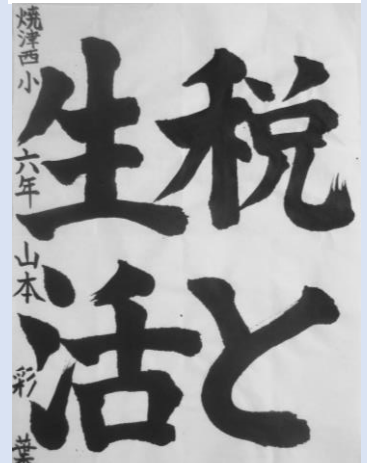 税と
生活
焼津西小 六年 山本 彩葉